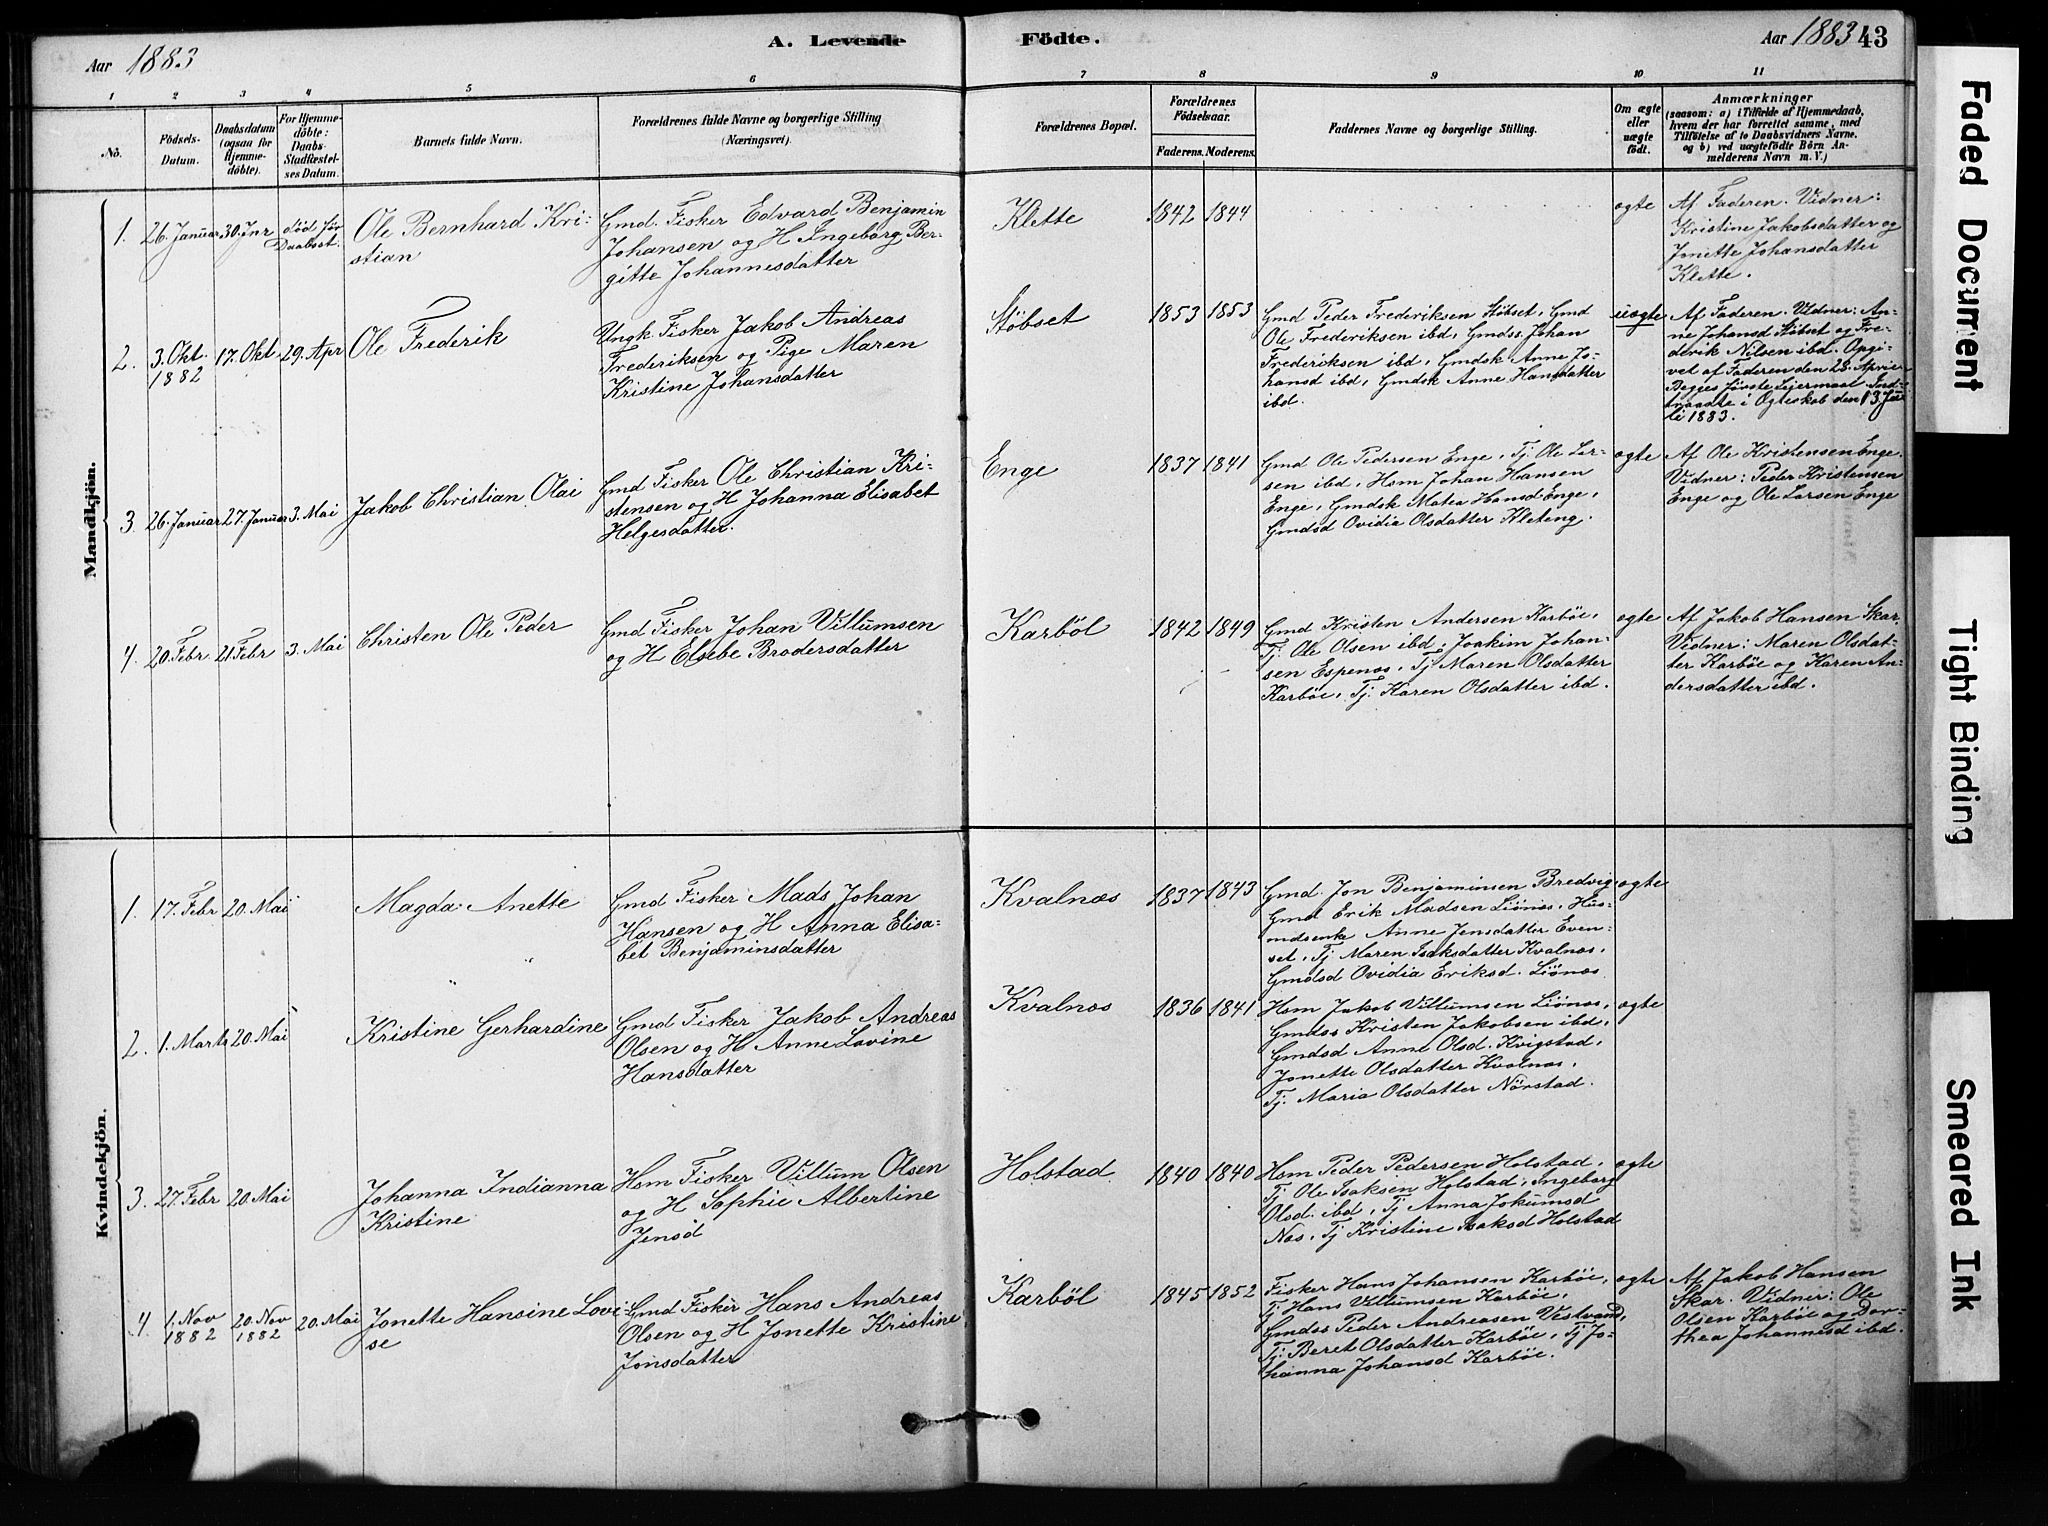 Aar 1883
A. Levende Födte.
Aar 1883
43
1 2 3 4 5 6 7 8 9 10 11
No.
Födsels-
Datum.
Daabsdatum
(ogsaa for
Hjemme-
døbte).
For Hjemme-
döbte:
Daabs-
Stadfæstel-
ses Datum.
Barnets fulde Navn.
Forældrenes fulde Navne og borgerlige Stilling
(Næringsvei).
Forældrenes Bopæl.
Forældrenes
Födselsaar.
Faderens. Moderens.
Faddernes Navne og borgerlige Stilling.
Om ægte
eller
uægte
födt.
Anmærkninger
(saasom: a) i Tilfælde af Hjemmedaab,
hvem der har forrettet samme, med
Tilföielse af to Daabsvidners Navne,
og b) ved uægtefödte Börn An-
melderens Navn m. V.)
Mandkjön.
1. 26. Januar 30. Jnr død før
Daabsst.
Ole Bernhard Kri-
stian
Gmd. Fisker Edvard Benjamin
Johansen og H Ingeborg Ber-
gitte Johannesdatter
Klette
1842 1844
ægte
Af Faderen. Vidner:
Kristine Jakobsdatter og
Jonette Johansdatter
Klette.
2. 3. Okt.
1882
17. Okt. 29. Apr
Ole Frederik
Ungk Fisker Jakob Andreas
Frederiksen og Pige Maren
Kristine Johansdatter
Støbset
1853 1853
Gmd Peder Frederiksen Støbset, Gmd
Ole Frederiksen ibd, Gmdss Johan
Frederiksen ibd, Gmdsk Anne Jo-
hansd ibd, Gmdsk Anne Hansdatter
ibd.
uægte
Af Faderen. Vidner: An-
ne Johansd Støbset og Fre-
derik Nilsen ibd. Opgi-
vet af Faderen den 28. April
Begges første Lejermaal. Ind-
traadte i Ægteskab den 13 Ju-
li 1883.
3 26. Januar 27. Januar 3. Mai
Jakob Christian Olai
Gmd Fisker Ole Christian Kri-
stensen og H Johanna Elisabet
Helgesdatter.
Enge
1837 1841
Gmd Ole Pedersen Enge, Tj. Ole Lar-
sen ibd, Hsm Johan Hansen
Enge, Gmdsk Matea Hansd Enge,
Gmdsd Ovidia Olsdatter Kleteng.
ægte
Af Ole Kristensen Enge.
Vidner: Peder Kristensen
Enge og Ole Larsen Enge
4. 20. Febr 21 Febr 3. Mai
Christen Ole Peder
Gmd Fisker Johan Villumsen
og H Elsebe Brodersdatter
Karbøl
1842 1849
Gmd Kristen Andersen Karbøe,
Tj Ole Olsen ibd, Joakim Johan-
sen Espenæs, Tj Maren Olsdatter
Karbøe, Tj. Karen Olsdatter ibd.
ægte
Af Jakob Hansen Skar
Vidner: Maren Olsdat-
ter Karbøe og Karen An-
dersdatter ibd.
Kvindekjön.
1. 17. Febr 20. Mai
Magda Anette
Gmd Fisker Mads Johan
Hansen og H Anna Elisa-
bet Benjaminsdatter
Kvalnæs
1837 1843
Gmd. Jon Benjaminsen Bredvig
Gmd Erik Madsen Liønæs, Hus-
mdsenke Anne Jensdatter Even-
set, Tj Maren Isaksdatter Kvalnæs,
Gmdsd Ovidia Eriksd. Liønæs
ægte
2. 1. Marts 20. Mai
Kristine Gerhardine
Gmd Fisker Jakob Andreas
Olsen og H. Anne Lovine
Hansdatter
Kvalnæs
1836 1841
Hsm Jakob Villumsen Liønæs,
Gmdss Kristen Jakobsen ibd,
Gmdsd Anne Olsd. Kvigstad,
Jonette Olsdatter Kvalnæs,
Tj. Maria Olsdatter Nørstad.
ægte
3. 27. Febr 20. Mai
Johanna Indianna
Kristine
Hsm Fisker Villum Olsen
og H Sophie Albertine
Jensd
Holstad
1840 1840
Hsm Peder Pedersen Holstad,
Tj Ole Isaksen Holstad, Ingeborg
Olsd. ibd, Tj Anna Jokumsd
Næs, Tj Kristine Isaksd Holstad
ægte
4. 1. Nov
1882
20. Nov
1882
20. Mai
Jonette Hansine Lovi-
se
Gmd Fisker Hans Andreas
Olsen og H Jonette Kristine
Jonsdatter
Karbøl
1845 1852
Fisker Hans Johansen Karbøe,
Tj Hans Villumsen Karbøe,
Gmdss Peder Andreasen Vestvand,
Tj. Beret Olsdatter Karbøe, Tj Jo-
hanna Johansd Karbøe.
ægte
Af Jakob Hansen
Skar. Vidner: Ole
Olsen Karbøe og Dor-
thea Johannesd ibd.
Faded Document
Tight Binding
Smeared Ink